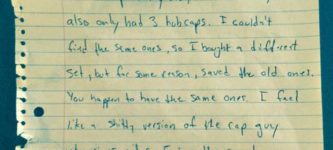 also only had 3 hubcaps. I couldn't
find the same ones, so I bought a different
set, but for some reason, saved the old ones.
You happen to have the same ones. I feel
like a shitty version of the cap guy